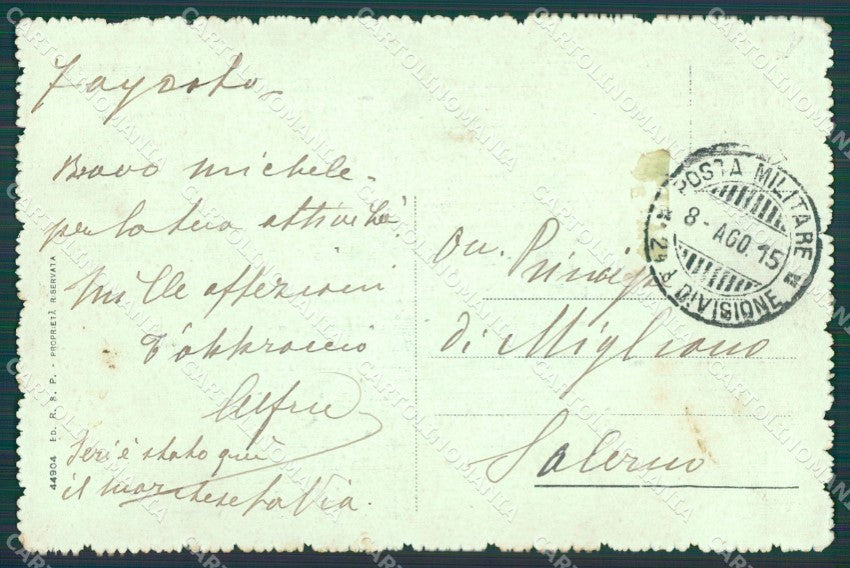 7 agosto
Bravo Michele -
per la tua attività!
Mille affezioni
T'abbraccio
Alfre
Ieri è stato qui
il
On. Principe
di Migliano
Salerno
POSTA MILITARE
8 - AGO. 15
DIVISIONE
44904 ED. R. B. P. - PROPRIETÀ RISERVATA
CARTOLINOMANIA